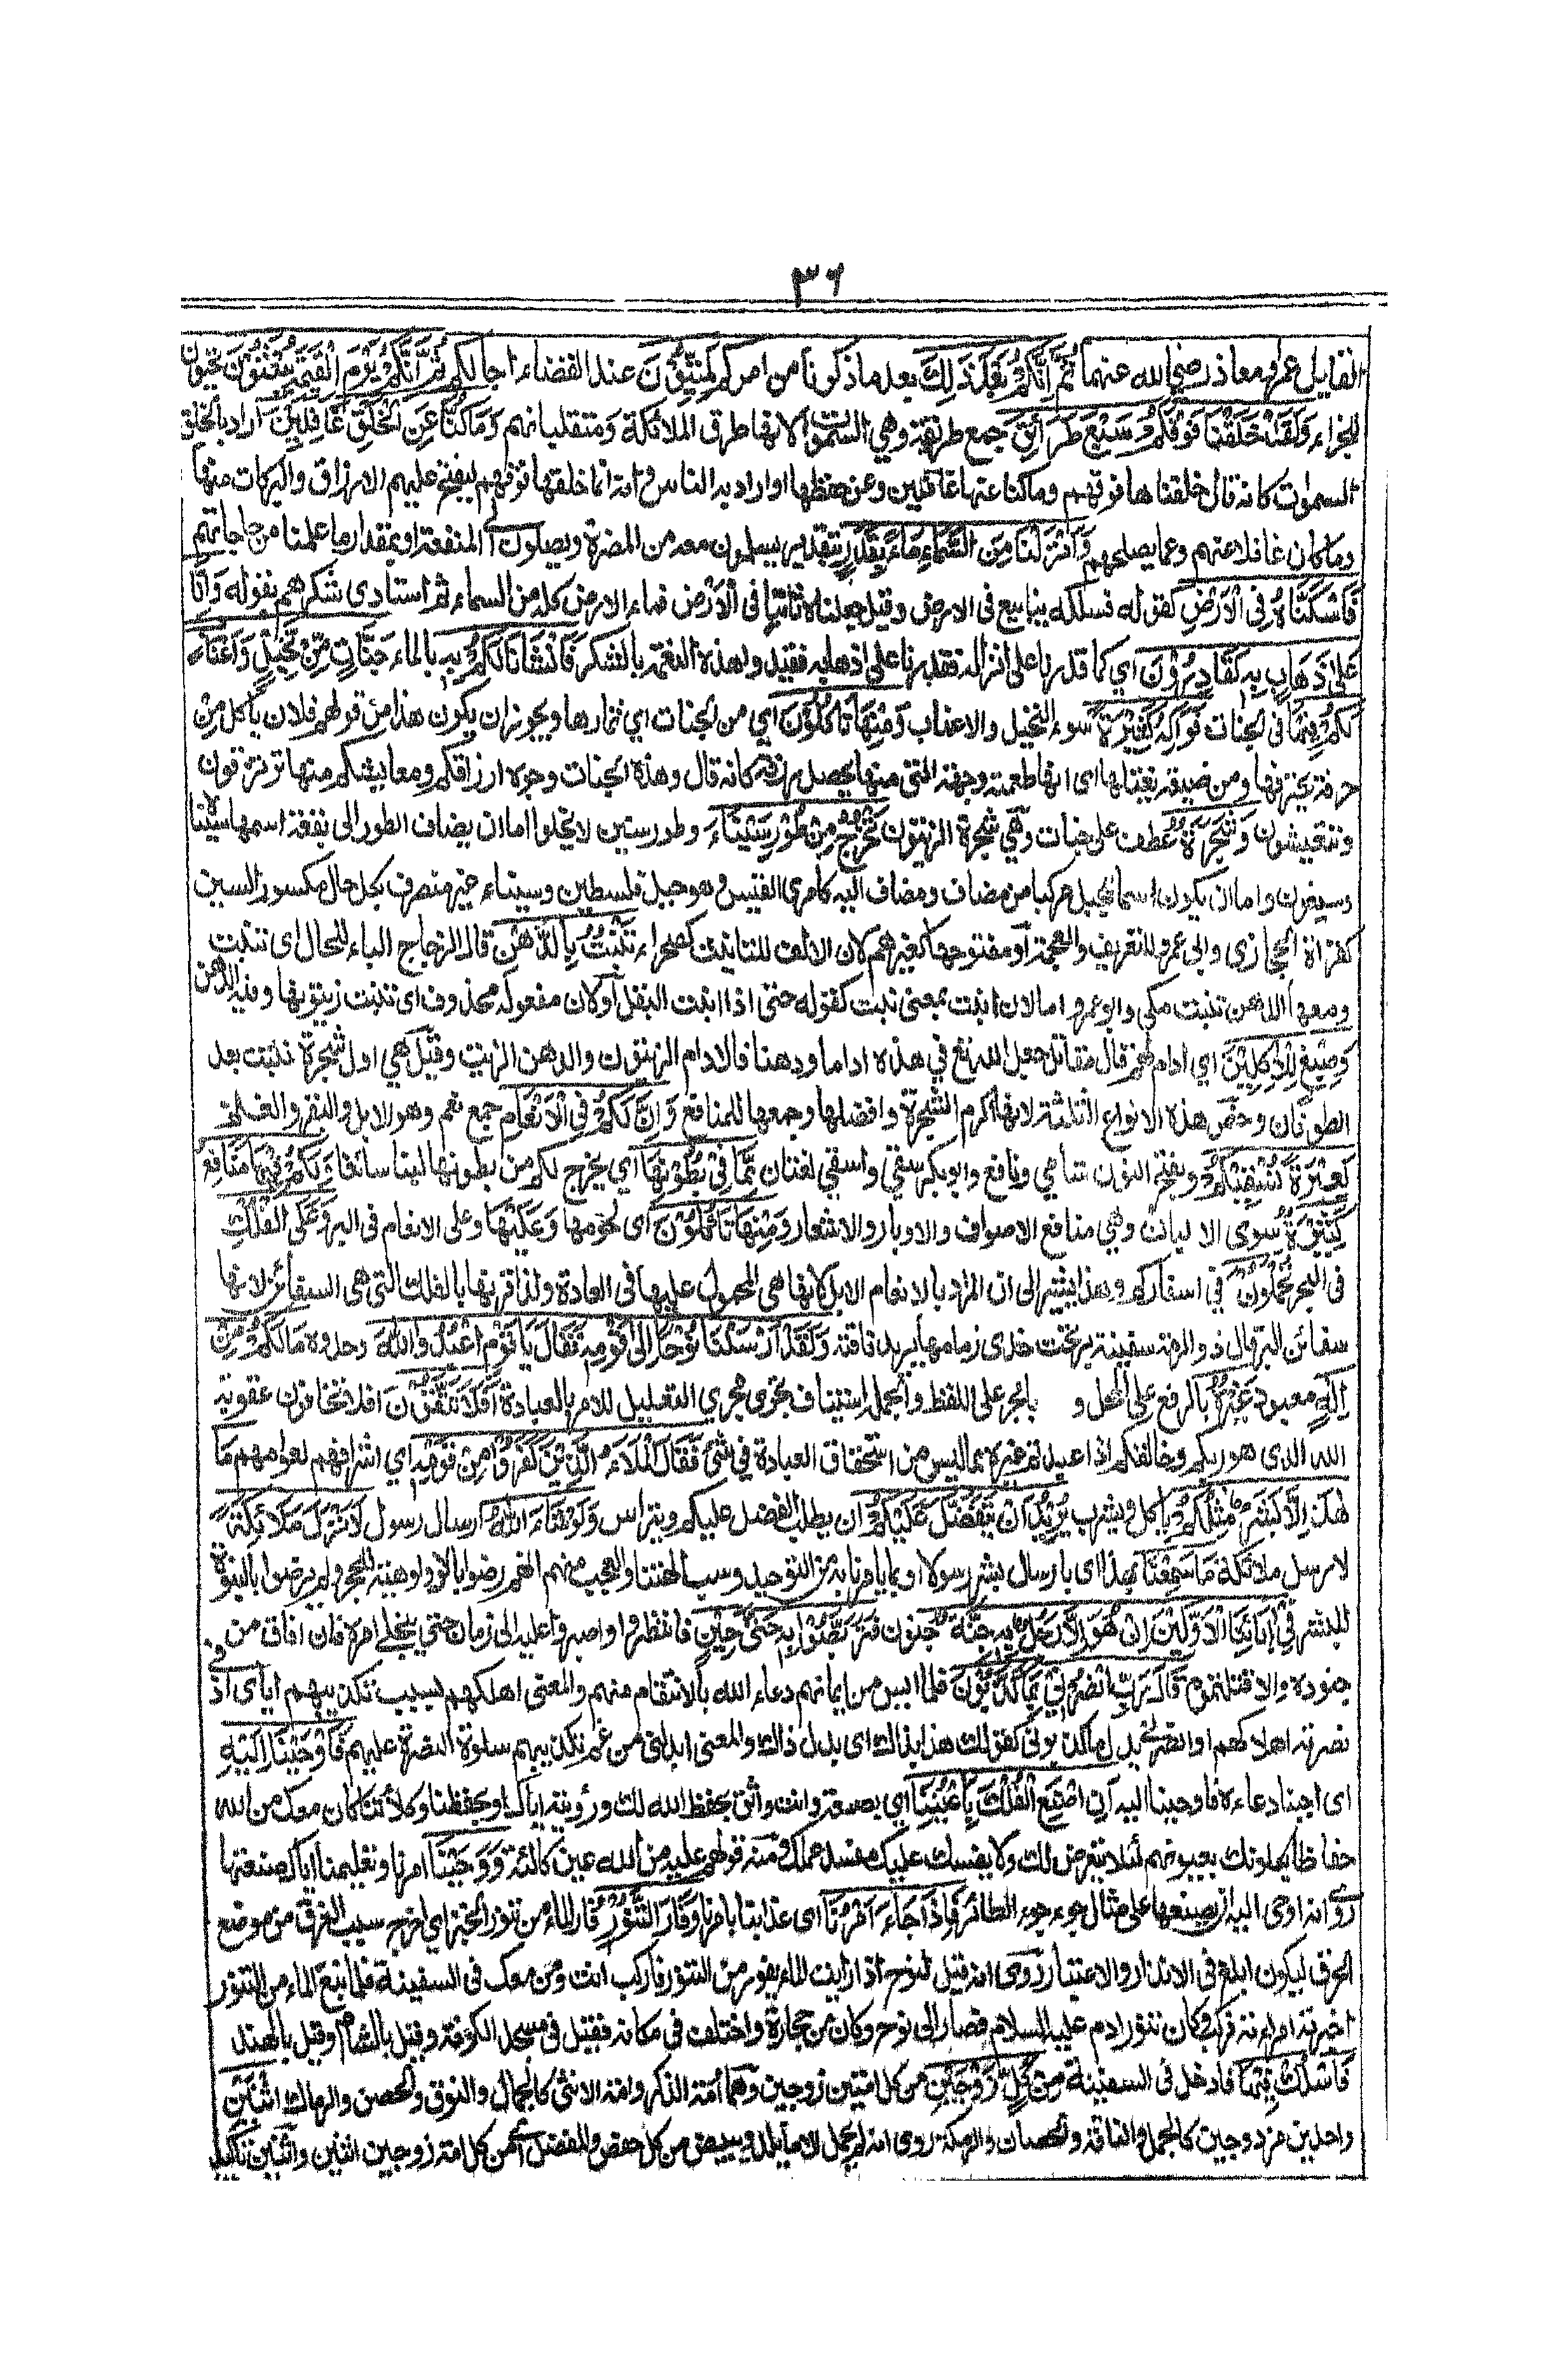 ٣٦
القايل عمر او معاذ رضي الله عنهما ثُمَّ إِنَّكُمْ بَعْدَ ذَلِكَ بعد ما ذكرنا من امركم لَمَيِّتُوْنَ عند انقضاء اجالكم ثُمَّ إِنَّكُمْ يَوْمَ الْقِيٰمَةِ تُبْعَثُوْنَ تحيون
للجزاء وَلَقَدْ خَلَقْنَا فَوْقَكُمْ سَبْعَ طَرَائِقَ جمع طريقة وهي السموات لانها طرق الملائكة ومتقلباتهم وَمَا كُنَّا عَنِ الْخَلْقِ غَافِلِيْنَ اراد بالخلق
السموات كانه قال خلقناها فوقهم وما كنا عنها غافلين وعن حفظها او اراد به الناس وانه انما خلقها فوقهم ليفتح عليهم الارزاق والبركات منها
وما كان غافلا عنهم وعما يصلحهم وَأَنْزَلْنَا مِنَ السَّمَاءِ مَاءً بِقَدَرٍ بتقدير يسلمون معه من المضرة ويصلون الى المنفعة او بمقدار ما علمنا من حاجاتهم
فَأَسْكَنَّاهُ فِى الْأَرْضِ كقوله فسلكه ينابيع فى الارض وقيل جعلناه ثابتا فى الْأَرْض فماء الارض كله من السماء ثم استادى شكرهم بقوله وَإِنَّا
عَلَى ذَهَابٍ بِهِ لَقَادِرُوْنَ اي كما قدرنا على انزاله فقد رنا على اذهابه فقيدوا هذه النعمة بالشكر فَأَنْشَأْنَا لَكُمْ بِهِ بالماء جَنَّاتٍ مِّنْ نَّخِيْلٍ وَأَعْنَابٍ
لَكُمْ فِيْهَا فى الجنات فَوَاكِهُ كَثِيْرَةٌ سوى النخيل والاعناب وَمِنْهَا تَأْكُلُوْنَ اي من الجنات اي ثمارها ويجوز ان يكون هذا من قولهم فلان ياكل من
حرفة يحترفها ومن ضيعة يغتلها اى انها طعمته وجهته التى منها يحصل رزقه كانه قال وهذه الجنات وجوه ارزاقكم ومعايشكم منها ترتزقون
وتتعيشون وَشَجَرَةً عطف على جنات وهي شجرة الزيتون تَخْرُجُ مِنْ طُوْرِ سَيْنَاءَ وطور سينين لا يخلوا اما ان يضاف الطور الى بقعة اسمها سيناء
وسينون واما ان يكون اسما للجبل مركبا من مضاف ومضاف اليه كامرئ القيس وهو جبل فلسطين وسيناء غير منصرف بكل حال مكسور السين
كقراءة الحجازى وابى عمرو للتعريف والعجمة او مفتوحها كغيرهم لان الالف للتانيث كصحراء تَنْبُتُ بِالدُّهْنِ قال الزجاج الباء للحال اى تنبت
ومعها الدهن تنبت مكي وابو عمرو اما لان انبت بمعنى نبت كقوله حتى اذا انبت البقل او لان مفعوله محذوف اى تنبت زيتونها وفيه الدهن
وَصِبْغٍ لِلْآكِلِيْنَ اي ادام لهم قال مقاتل جعل الله تع في هذه اداما ودهنا فالادام الزيتون والدهن الزيت وقيل هي اول شجرة نبتت بعد
الطوفان وخص هذه الانواع الثلثة لانها اكرم الشجرة وافضلها وجمعها للمنافع وَإِنَّ لَكُمْ فِي الْأَنْعَامِ جمع نعم وهو الابل والبقر والغنم
لَعِبْرَةً نُسْقِيْكُمْ وبفتح النون شامي ونافع وابو بكر سقي واسقي لغتان مِّمَّا فِيْ بُطُوْنِهَا اي يخرج لكم من بطونها لبنا سائغا وَلَكُمْ فِيْهَا مَنَافِعُ
كَثِيْرَةٌ سوى الالبان وهي منافع الاصواف والاوبار والاشعار وَمِنْهَا تَأْكُلُوْنَ اى لحومها وَعَلَيْهَا وعلى الانعام فى البر وَعَلَى الْفُلْكِ
فى البحر تُحْمَلُوْنَ في اسفاركم وهذا يشير الى ان المراد بالانعام الابل لانها هي المحمول عليها فى العادة ولذا قرنها بالفلك التي هي السفائن لانها
سفائن البر قال ذو الرمة سفينة بر تحت خدى زمامها يريد ناقته وَلَقَدْ أَرْسَلْنَا نُوْحًا إِلَىٰ قَوْمِهِ فَقَالَ يَا قَوْمِ اعْبُدُوا اللهَ وحدوه مَا لَكُمْ مِّنْ
إِلَهٍ معبود غَيْرُهُ بالرفع على المحل و بالجر على اللفظ والجملة استيناف تجرى مجري التعليل للامر بالعبادة أَفَلَا تَتَّقُوْنَ افلا تخافون عقوبة
الله الذى هو ربكم وخالقكم اذا عبدتم غيره مما ليس من استحقاق العبادة في شئ فَقَالَ الْمَلَأُ الَّذِيْنَ كَفَرُوْا مِنْ قَوْمِهِ اي اشرافهم لعوامهم مَا
هَذَا إِلَّا بَشَرٌ مِّثْلُكُمْ ياكل ويشرب يُرِيْدُ أَنْ يَّتَفَضَّلَ عَلَيْكُمْ ان يطلب الفضل عليكم ويتراس وَلَوْ شَاءَ اللهُ ارسال رسول لَأَنْزَلَ مَلَائِكَةً
لارسل ملائكة مَا سَمِعْنَا بِهَذَا اى بارسال بشر رسولا او بما يامرنا به من التوحيد وسب الهتنا والعجب منهم انهم رضوا بالالوهية للحجر ولم يرضوا بالنبوة
للبشر فِيْ آبَائِنَا الْأَوَّلِيْنَ إِنْ هُوَ إِلَّا رَجُلٌ بِهِ جِنَّةٌ جنون فَتَرَبَّصُوْا بِهِ حَتّٰى حِيْنٍ فانتظروا واصبروا عليه الى زمان حتى ينجلي امره فان افاق من
جنونه والا قتلتموه قَالَ رَبِّ انْصُرْنِيْ بِمَا كَذَّبُوْنِ فلما ايس من ايمانهم دعا الله بالانتقام منهم والمعنى اهلكهم بسبب تكذيبهم اياى اذ في
نصرته اهلاكهم او انصرني بدل ما كذبوني كقولك هذا بذاك اى بدل ذاك والمعنى ابدلني من غم تكذيبهم سلوة النصرة عليهم فَأَوْحَيْنَا إِلَيْهِ
اى اجبنا دعاءه فاوحينا اليه أَنِ اصْنَعِ الْفُلْكَ بِأَعْيُنِنَا اي يصنعه وانت واثق بحفظ الله لك ورؤيته اياك او بحفظنا وكلاءتنا كان معك من الله
حفاظا يكلونك بعيونهم لئلا يتعرض لك ولا يفسد عليك مفسد عملك ومنه قولهم عليه من الله عين كالئة وَوَحْيِنَا امرنا وتعليمنا اياك صنعتها
روي انه اوحى اليه ان يصنعها على مثال جوء جوء الطائر فَإِذَا جَاءَ أَمْرُنَا اى عذابنا بامرنا وَفَارَ التَّنُّوْرُ فار الماء من تنور الخبز اي اخرج سبب الغرق من موضع
الحرق ليكون ابلغ فى الانذار والاعتبار روى انه قيل لنوح اذا رايت الماء يفور من التنور فاركب انت ومن معك فى السفينة فلما نبع الماء من التنور
اخبرته امراته فركب وكان تنور ادم عليه السلام فصار الى نوح وكان من حجارة واختلف في مكانه فقيل فى مسجد الكوفة وقيل بالشام وقيل بالهند
فَاسْلُكْ فِيْهَا فادخل فى السفينة مِنْ كُلٍّ زَوْجَيْنِ من كل امتين زوجين وهما امة الذكر وامة الانثى كالجمال والنوق والحصن والرماك اثْنَيْنِ
واحدين مزدوجين كالجمل والناقة والحصان والرمكة روى انه لم يحمل الا ما يلد ويبيض من كل حفص والمفضل اى من كل امة زوجين اثنين واثنين تاكيد